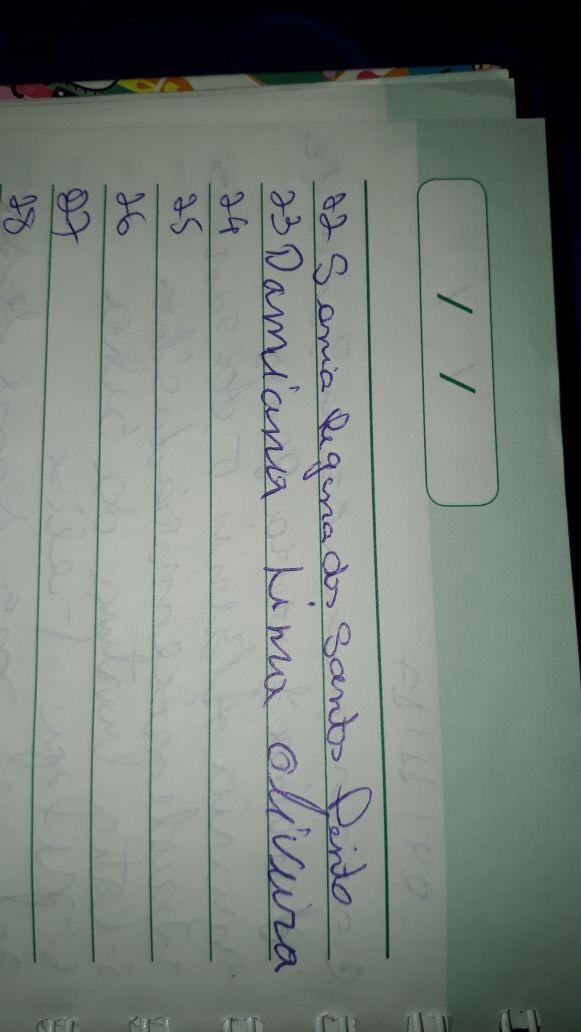 / /
22 Sonia Regina dos Santos Peixto
23 Damiana Lima Oliveira
24
25
26
27
28